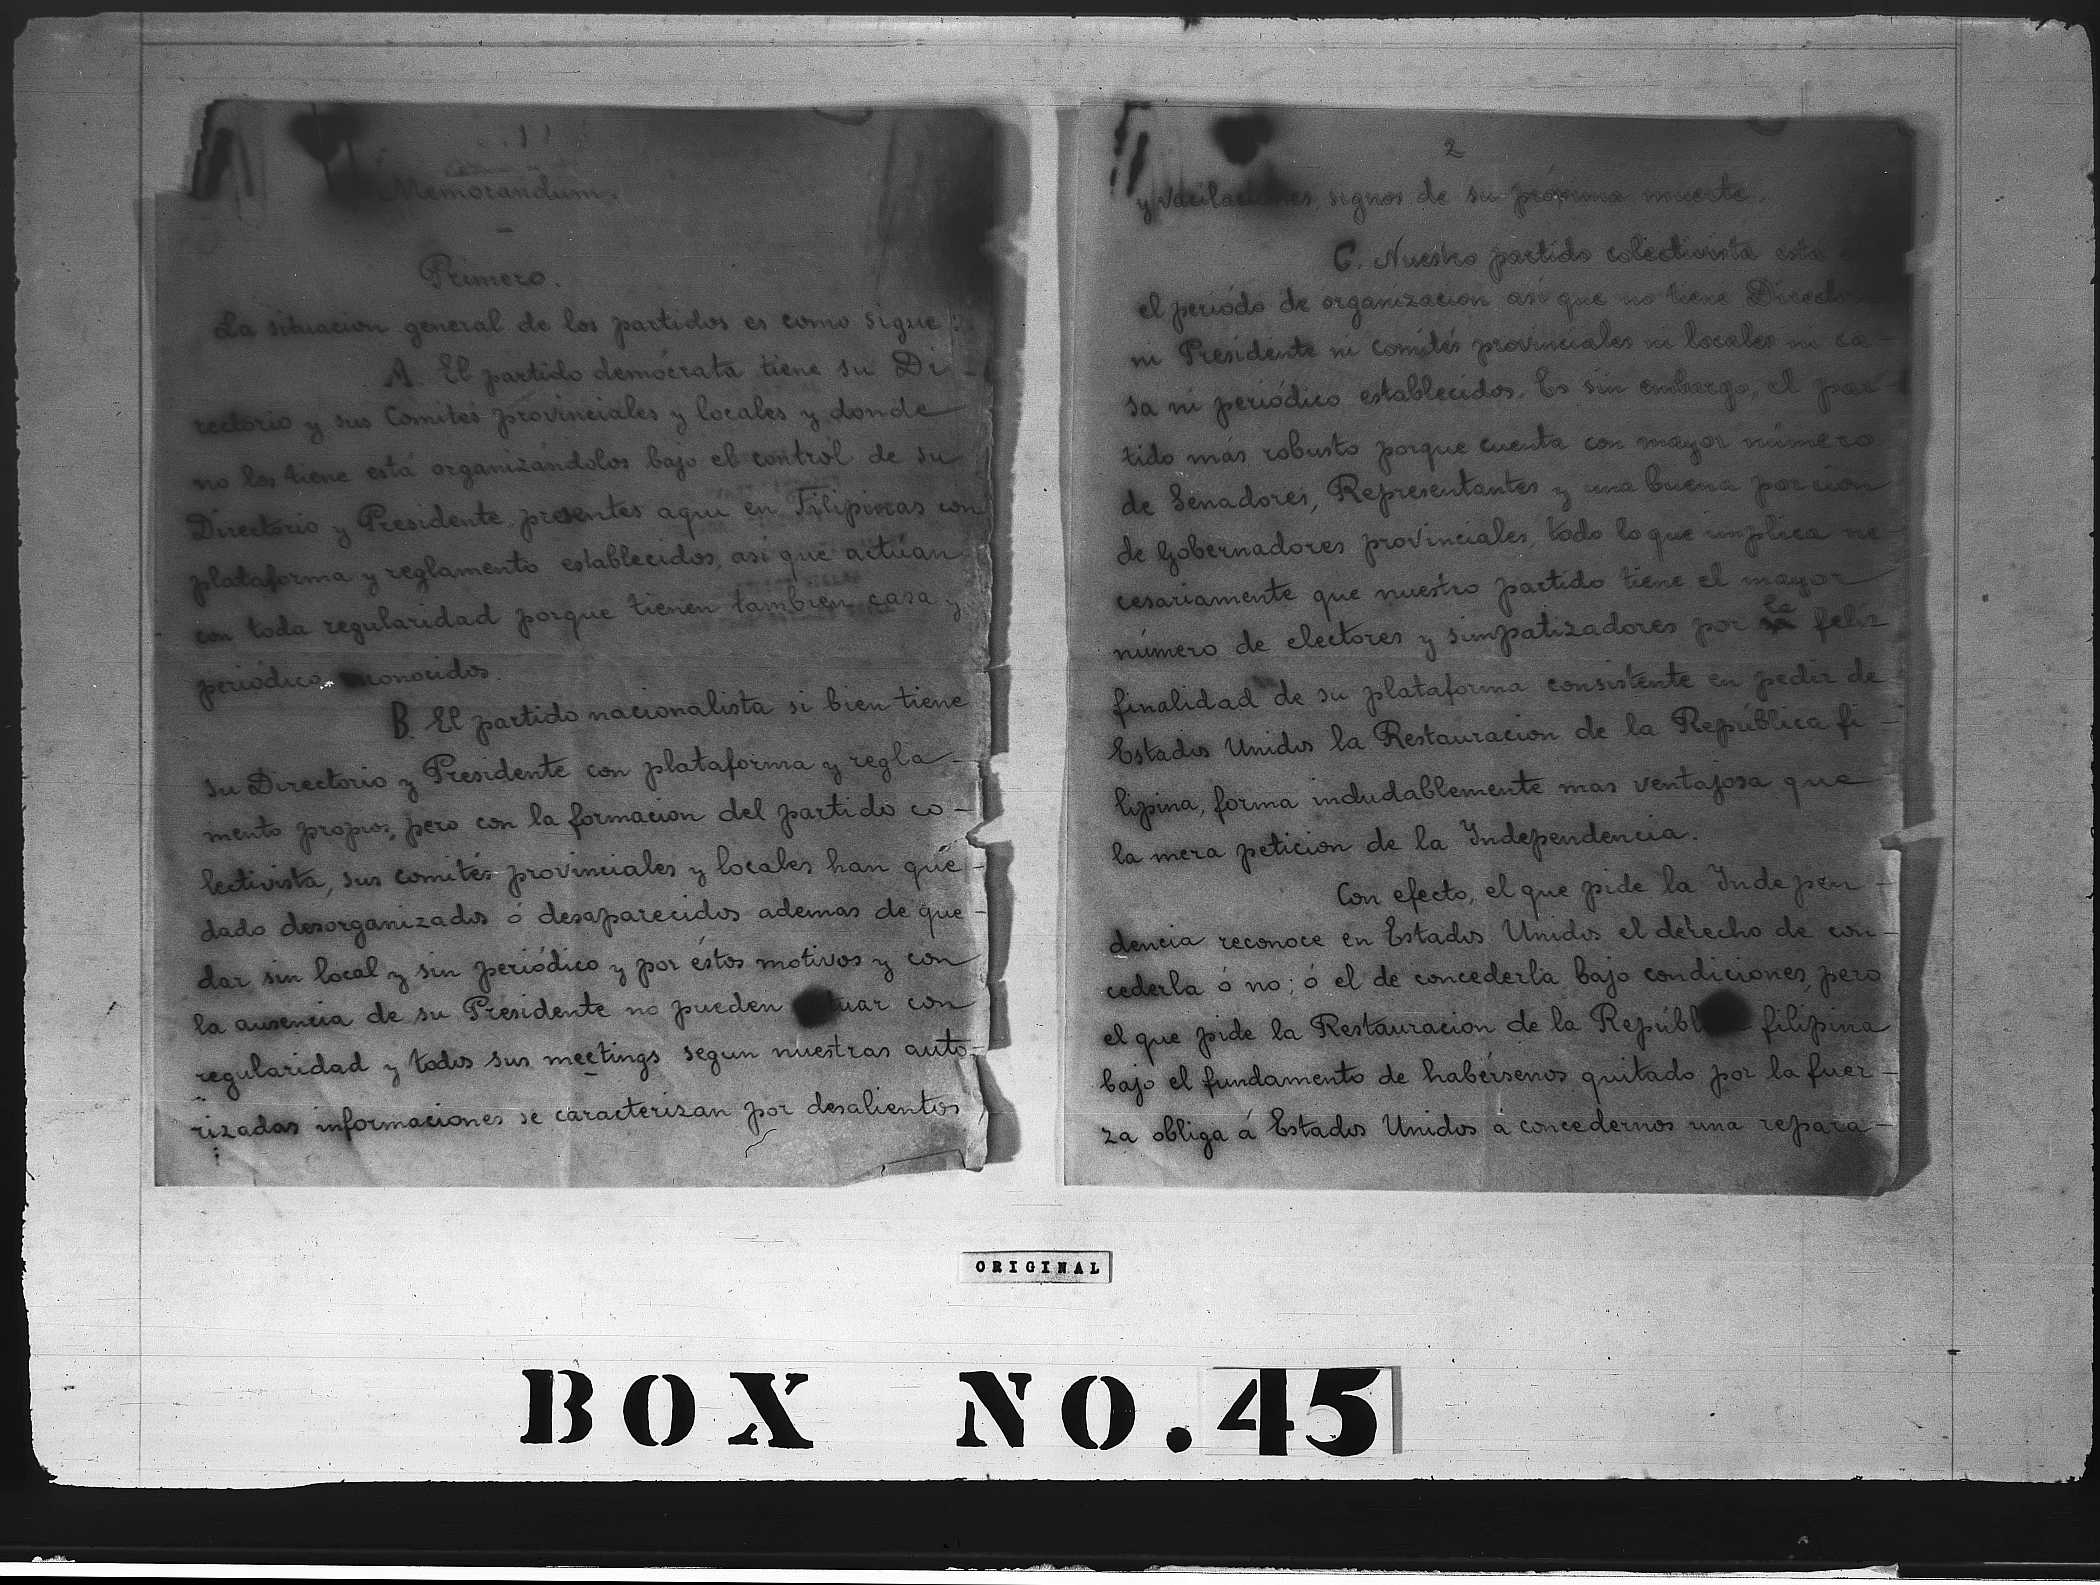 Memorandum.
Primero.
La situacion general de los partidos es como sigue:
A. El partido demócrata tiene su Di-
rectorio y sus Comités provinciales y locales y donde
no los tiene está organizándolos bajo el control de su
Directorio y Presidente presentes aqui en Filipinas con
plataforma y reglamento establecidos, asi que actúan
con toda regularidad porque tienen tambien casa y
periódico conocidos.
B. El partido nacionalista si bien tiene
su Directorio y Presidente con plataforma y regla-
mento propios, pero con la formacion del partido co-
lectivista, sus comités provinciales y locales han que-
dado desorganizados ó desaparecidos ademas de que-
dar sin local y sin periódico y por éstos motivos y con
la ausencia de su Presidente no pueden tuar con
regularidad y todos sus meetings segun nuestras auto-
rizadas informaciones se caracterizan por desalientos
2
y vacilaciones, signos de su próxima muerte.
C. Nuestro partido colectivista esta
el periódo de organizacion asi que no tiene Director
ni Presidente ni comités provinciales ni locales ni ca-
sa ni periódico establecidos. Es sin embargo, el par-
tido más robusto porque cuenta con mayor número
de Senadores, Representantes y una buena porcion
de Gobernadores provinciales, todo lo que implica ne-
cesariamente que nuestro partido tiene el mayor
número de electores y simpatizadores por la feliz
finalidad de su plataforma consistente en pedir de
Estados Unidos la Restauracion de la República fi-
lipina, forma indudablemente mas ventajosa que
la mera peticion de la Independencia.
Con efecto, el que pide la Indepen-
dencia reconoce en Estados Unidos el derecho de con-
cederla ó no; ó el de concederla bajo condiciones, pero
el que pide la Restauracion de la Repúbl filipina
bajo el fundamento de habérsenos quitado por la fuer-
za obliga á Estados Unidos á concedernos una repara-
ORIGINAL
BOX NO. 45